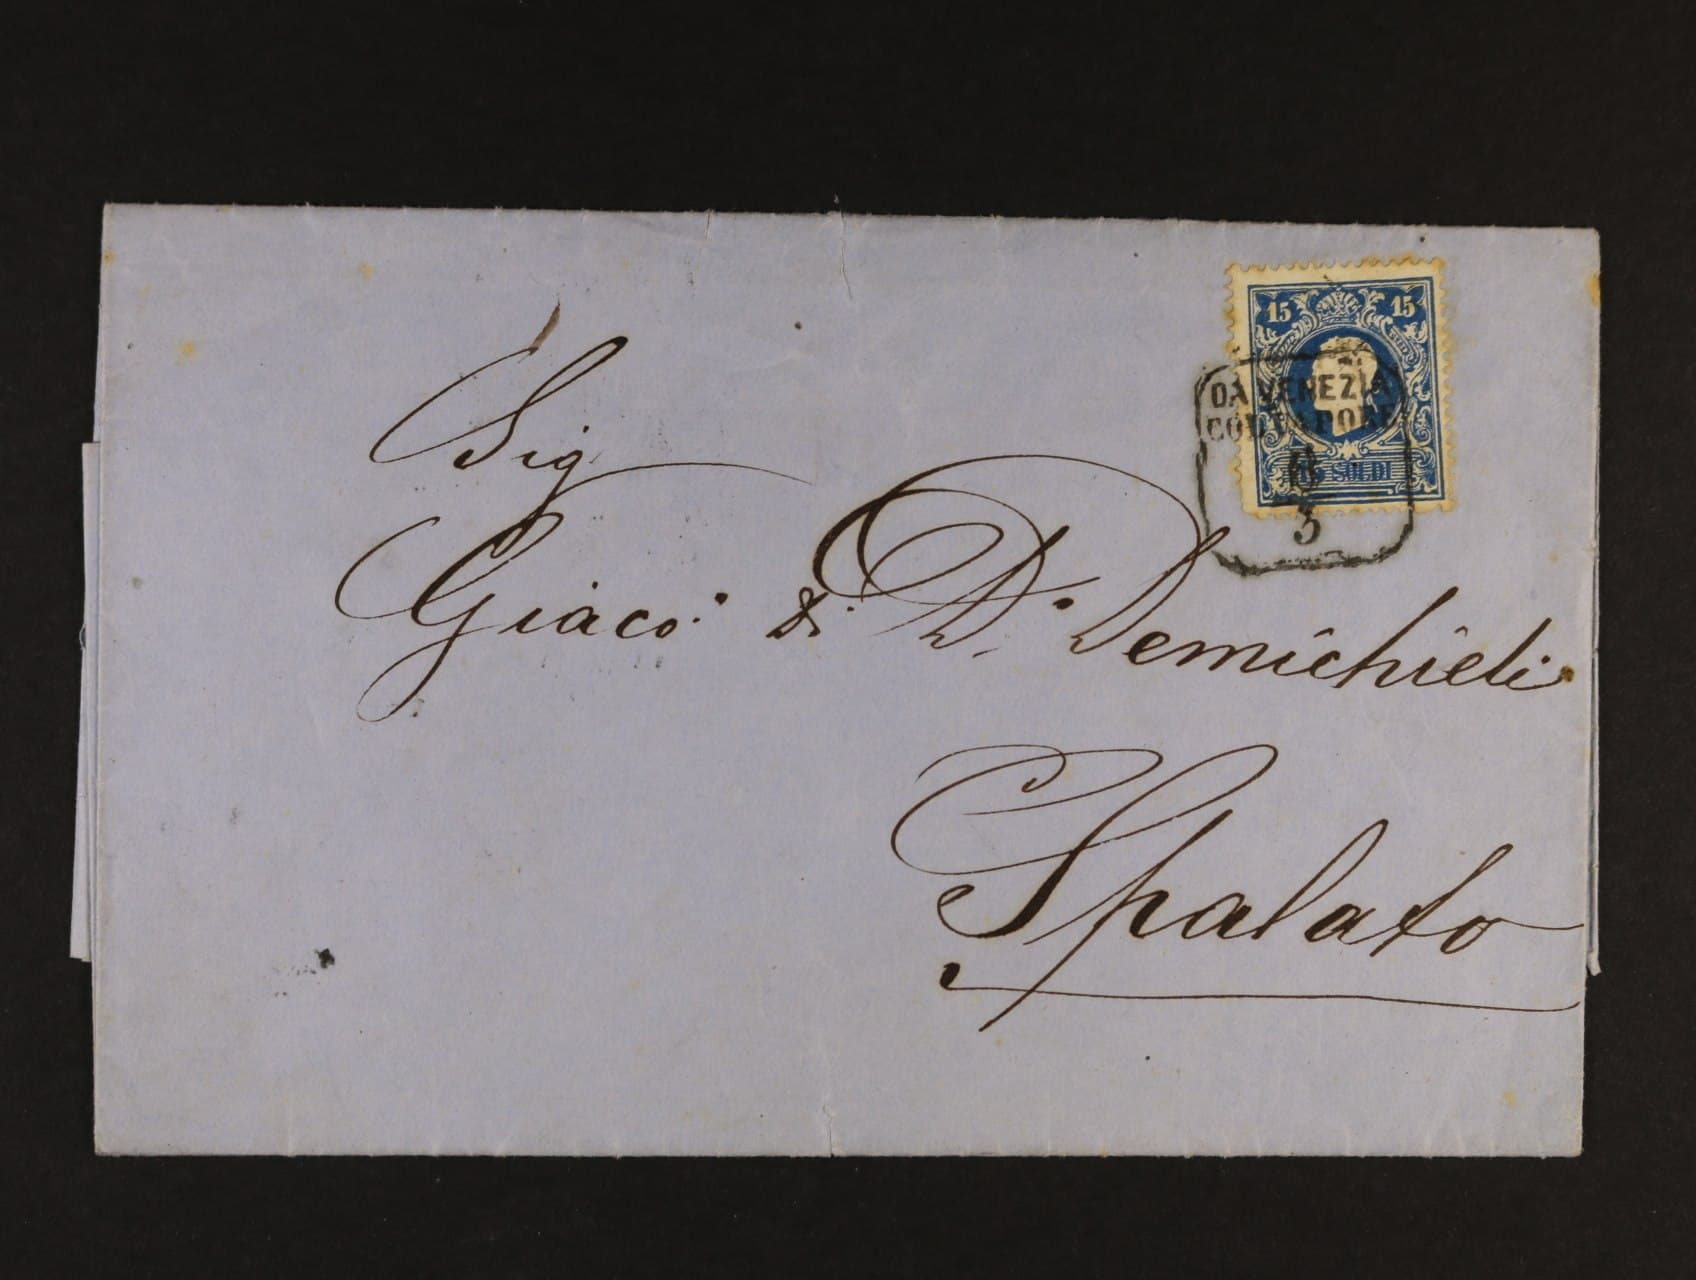 15 15
DA VENEZIA
COL VAPORE
6
3
15 SOLDI
Sig
Giaco.° di D.° Demichieli
Spalato